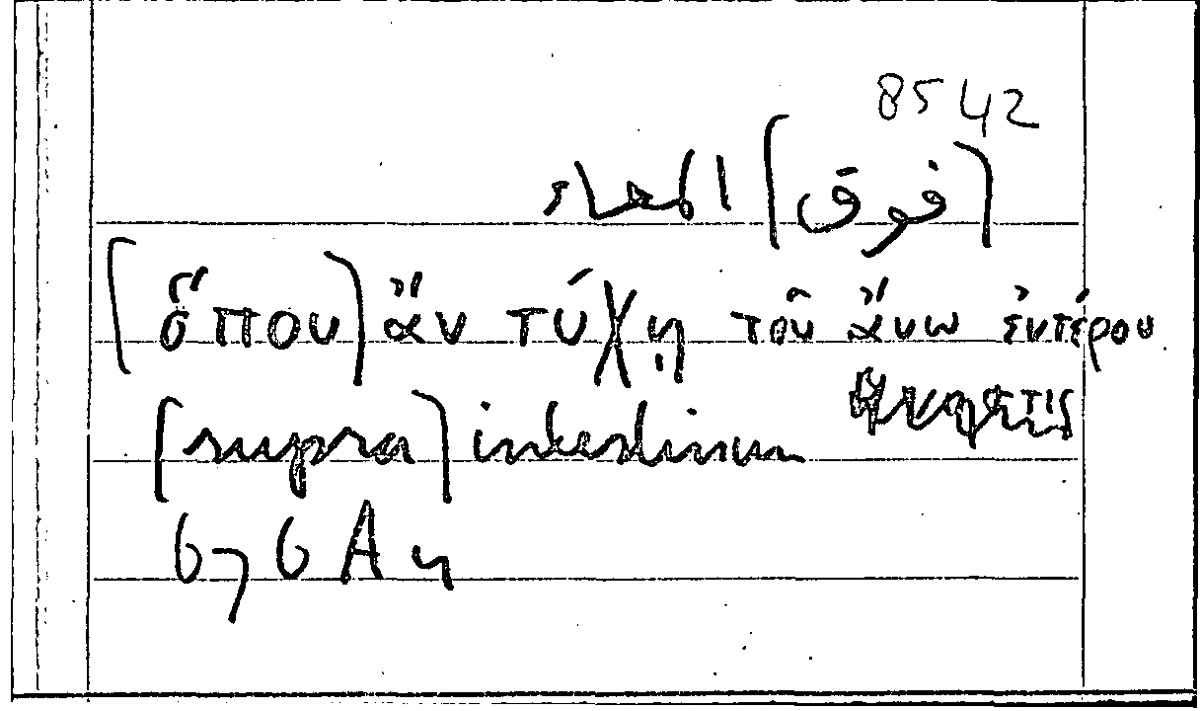 8542
(فوق) المعاء
(ὅπου) ἂν τύχῃ τοῦ ἄνω ἐντέρου
(supra) intestinum
676 A 4